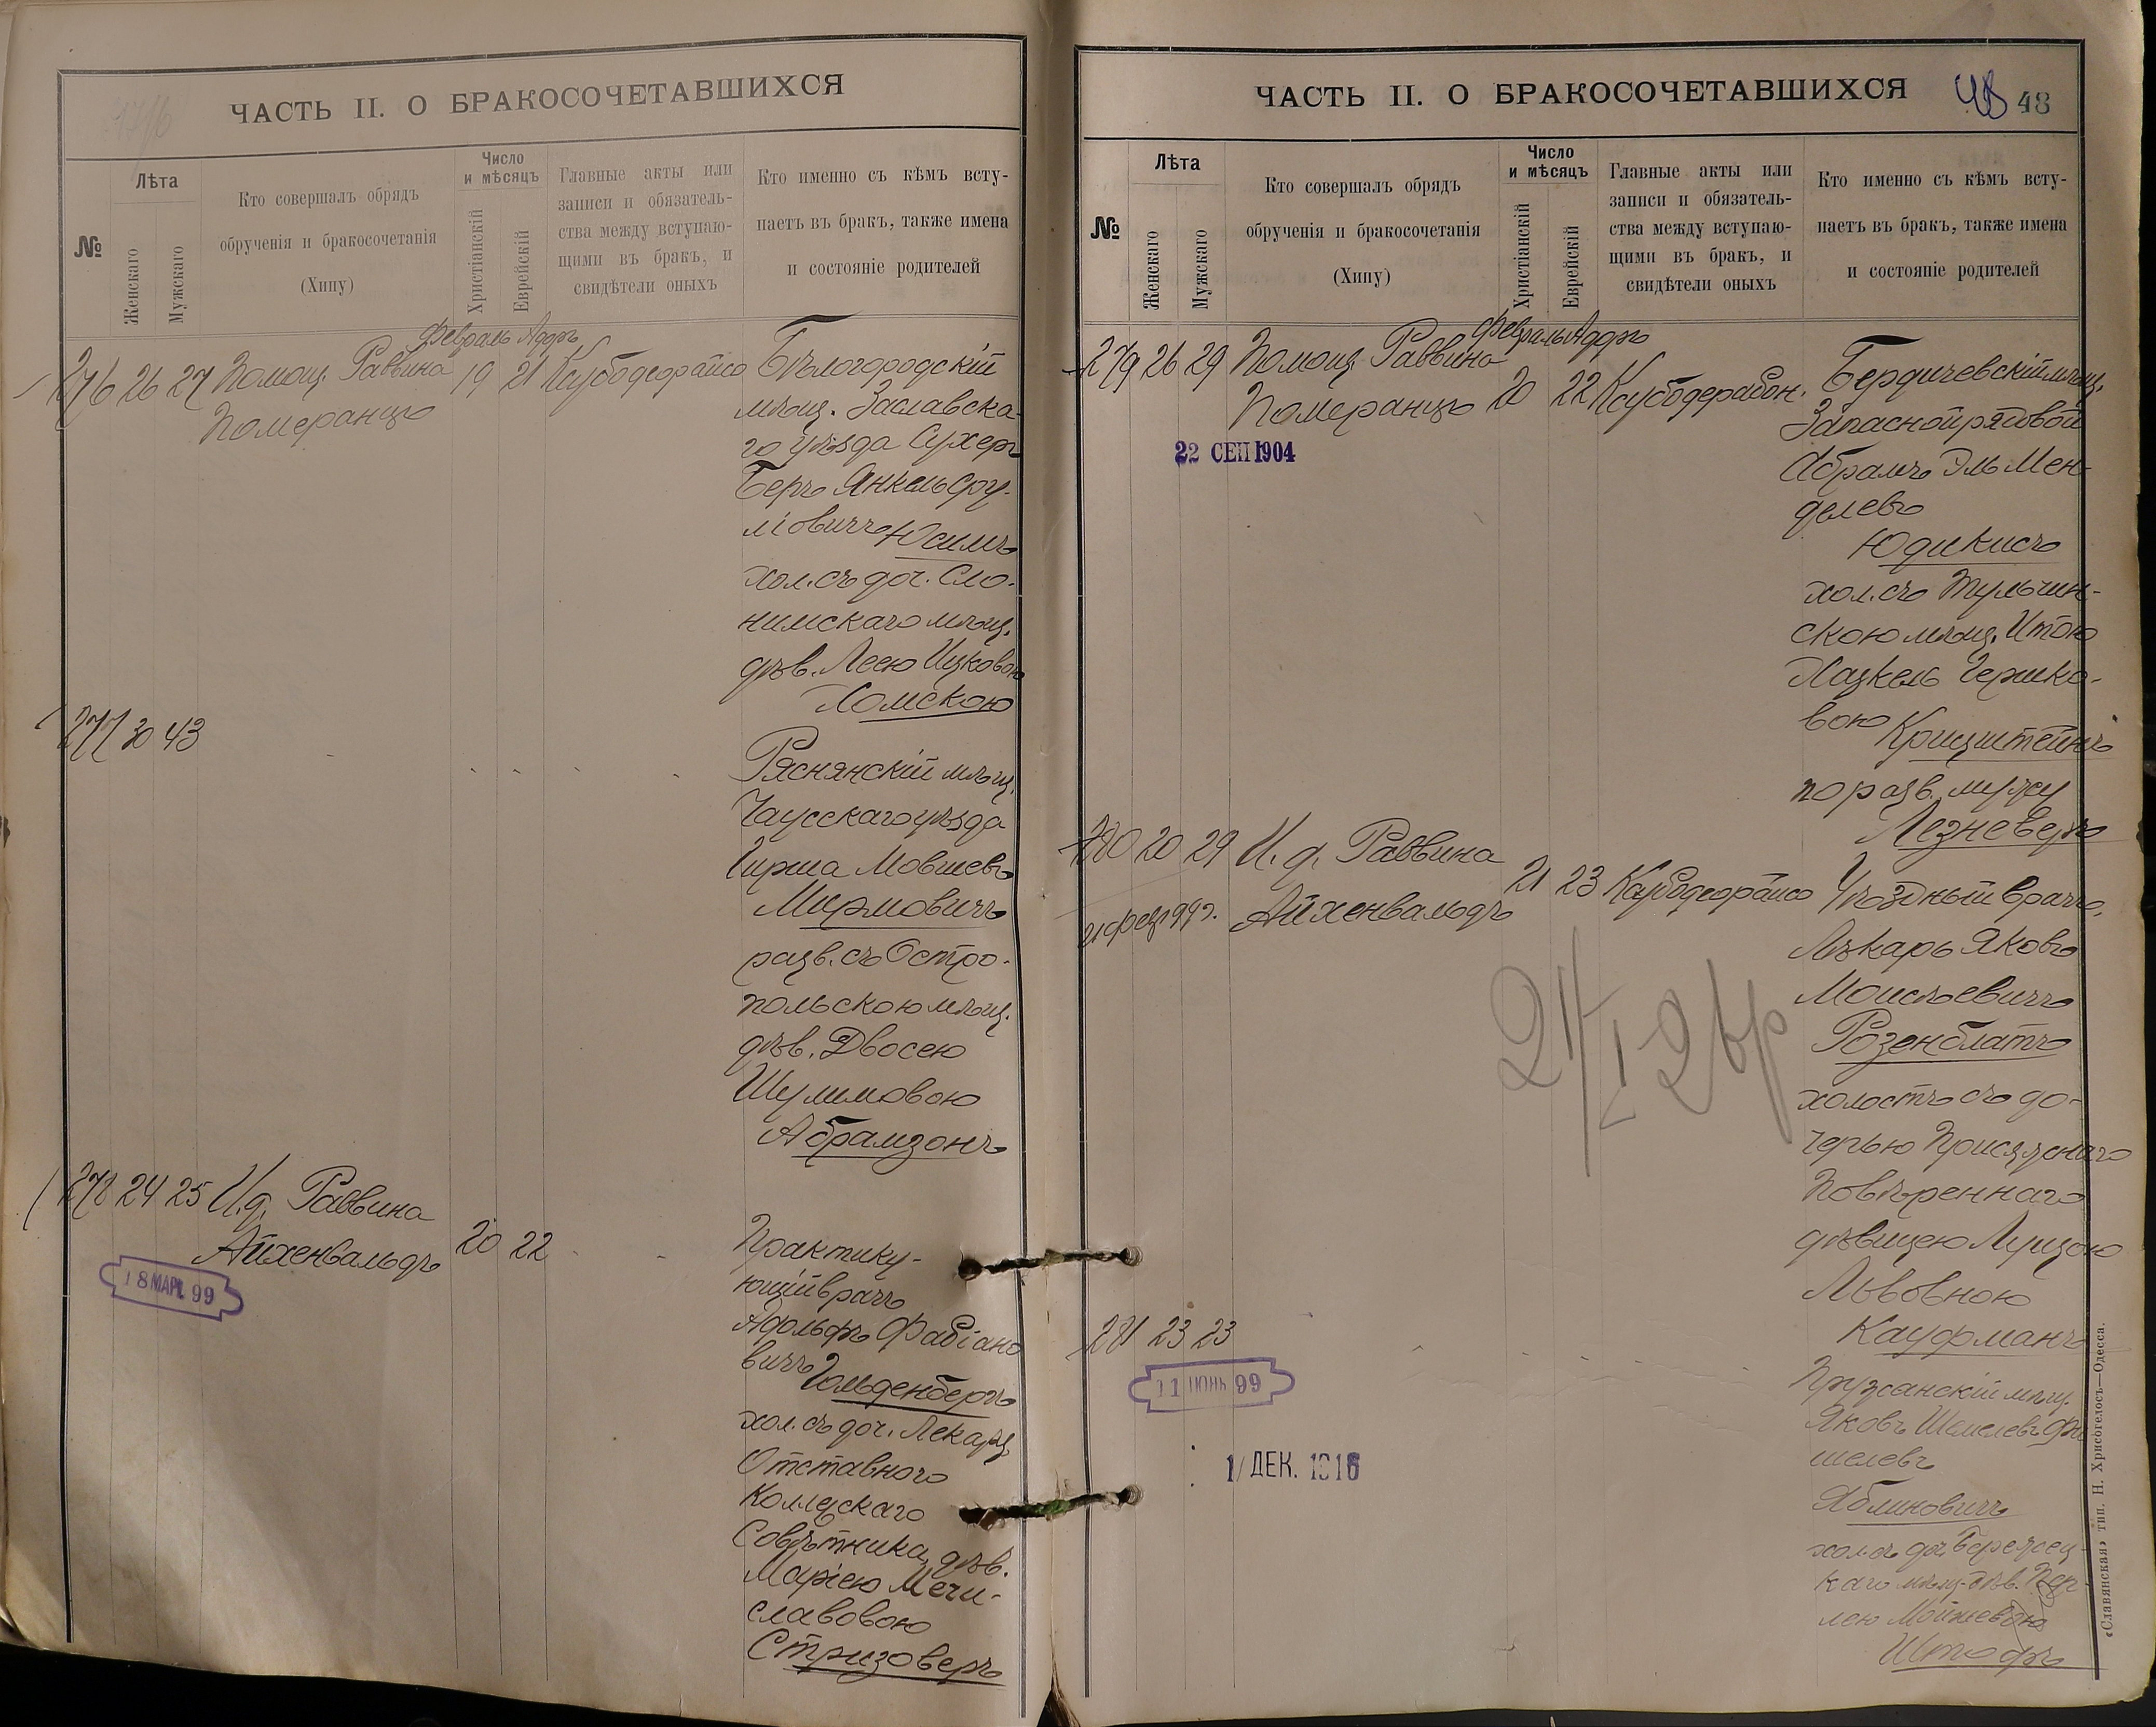 ЧАСТЬ II. О БРАКОСОЧЕТАВШИХСЯ
№
Лѣта
Женскаго
Мужскаго
Кто совершалъ обрядъ
обрученія и бракосочетанія
(Хипу)
Число
и мѣсяцъ
Христіанскій
Еврейскій
Главные акты или
записи и обязатель-
ства между вступаю-
щими въ бракъ, и
свидѣтели оныхъ
Кто именно съ кѣмъ всту-
паетъ въ бракъ, также имена
и состояніе родителей
Февраль Адаръ
276 26 27 Помощ. Раввина 19 21
Померанцъ
Бѣлогородскій
мѣщ. Заславска-
го уѣзда Сухеръ
Беръ Янкель Сру-
ліовичъ Юсимъ
хол. съ доч. Сло-
нимскаго мѣщ.
дѣв. Леею Ицковою
Хомскою
277 30 43
Ряснянскій мѣщ.
Чаусскаго уѣзда
Гирша Мовшевъ
Мирмовичъ
разв. съ Остро-
польскою мѣщ.
дѣв. Двосею
Шулимовою
Абрамзонъ
278 24 25 И. д. Раввина
Айхенвальдъ 20 22
18 МАР. 99
Практику-
ющій врачъ
Адольфъ Фабіано
вичъ Гольденбергъ
хол. съ доч. Лекаря,
Отставного
Коллежскаго
Совѣтника, дѣв.
Маріею Мечи-
славовою
Стризоверъ
ЧАСТЬ II. О БРАКОСОЧЕТАВШИХСЯ
48 48
№
Лѣта
Женскаго
Мужскаго
Кто совершалъ обрядъ
обрученія и бракосочетанія
(Хипу)
Число
и мѣсяцъ
Христіанскій
Еврейскій
Главные акты или
записи и обязатель-
ства между вступаю-
щими въ бракъ, и
свидѣтели оныхъ
Кто именно съ кѣмъ всту-
паетъ въ бракъ, также имена
и состояніе родителей
Февраль Адаръ
279 26 29 Помощ. Раввина
Померанцъ 20 22
22 СЕН 1904
Бердичевскій мѣщ.
Запасной рядовой
Абрамъ Эль Мен-
делевъ
Юдикисъ
хол. съ Тульчин-
скою мѣщ. Итою
Хазкель Гершко-
вою Крицштейнъ
по разв. мужу
Лезневеръ
280 20 29 И. д. Раввина
Айхенвальдъ 21 23
Уѣздный врачъ,
Лѣкарь Яковъ
Моисѣевичъ
Розенблатъ
холостъ съ до-
черью Присяжнаго
Повѣреннаго
дѣвицею Луизою
Львовною
Кауфманъ
281 23 23
11 ІЮНЬ 99
1/ ДЕК. 1916
Пружанскій мѣщ.
Яковъ Шмелевъ Фи
шелевъ
Яблиновичъ
хол. съ доч. Березец-
каго мѣщ. дѣв.
Штофъ
«Славянская» тип. Н. Хрисогелосъ—Одесса.